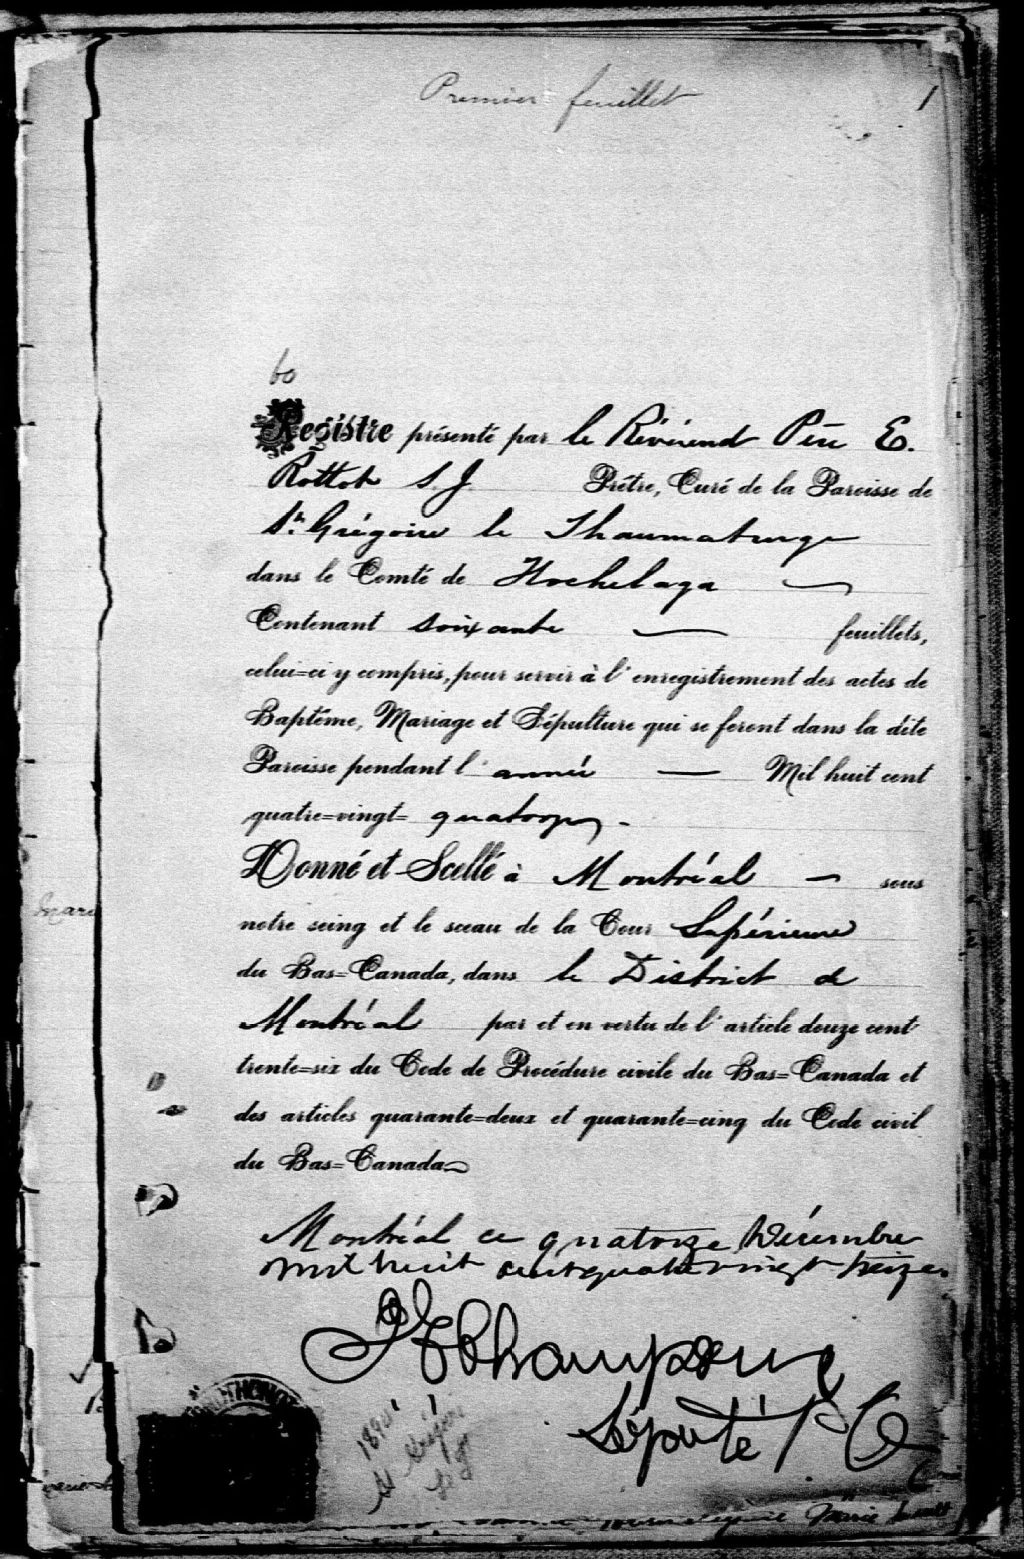 Premier feuillet
1
60
Registre présenté par le Révérend Père E.
Rottot S. J. Prêtre, Curé de la Paroisse de
St. Grégoire le Thaumaturge
dans le Comté de Hochelaga
Contenant soixante feuillets,
celui=ci y compris, pour servir à l'enregistrement des actes de
Baptême, Mariage et Sépulture qui se feront dans la dite
Paroisse pendant l'année Mil huit cent
quatre=vingt= quatorze.
Donné et Scellé à Montréal sous
notre seing et le sceau de la Cour Supérieure
du Bas=Canada, dans le District de
Montréal par et en vertu de l'article douze cent
trente=six du Code de Procédure civile du Bas=Canada et
des articles quarante=deux et quarante=cinq du Code civil
du Bas=Canada
Montréal ce quatorze Décembre
mil huit cent quatre vingt treize
Député P C